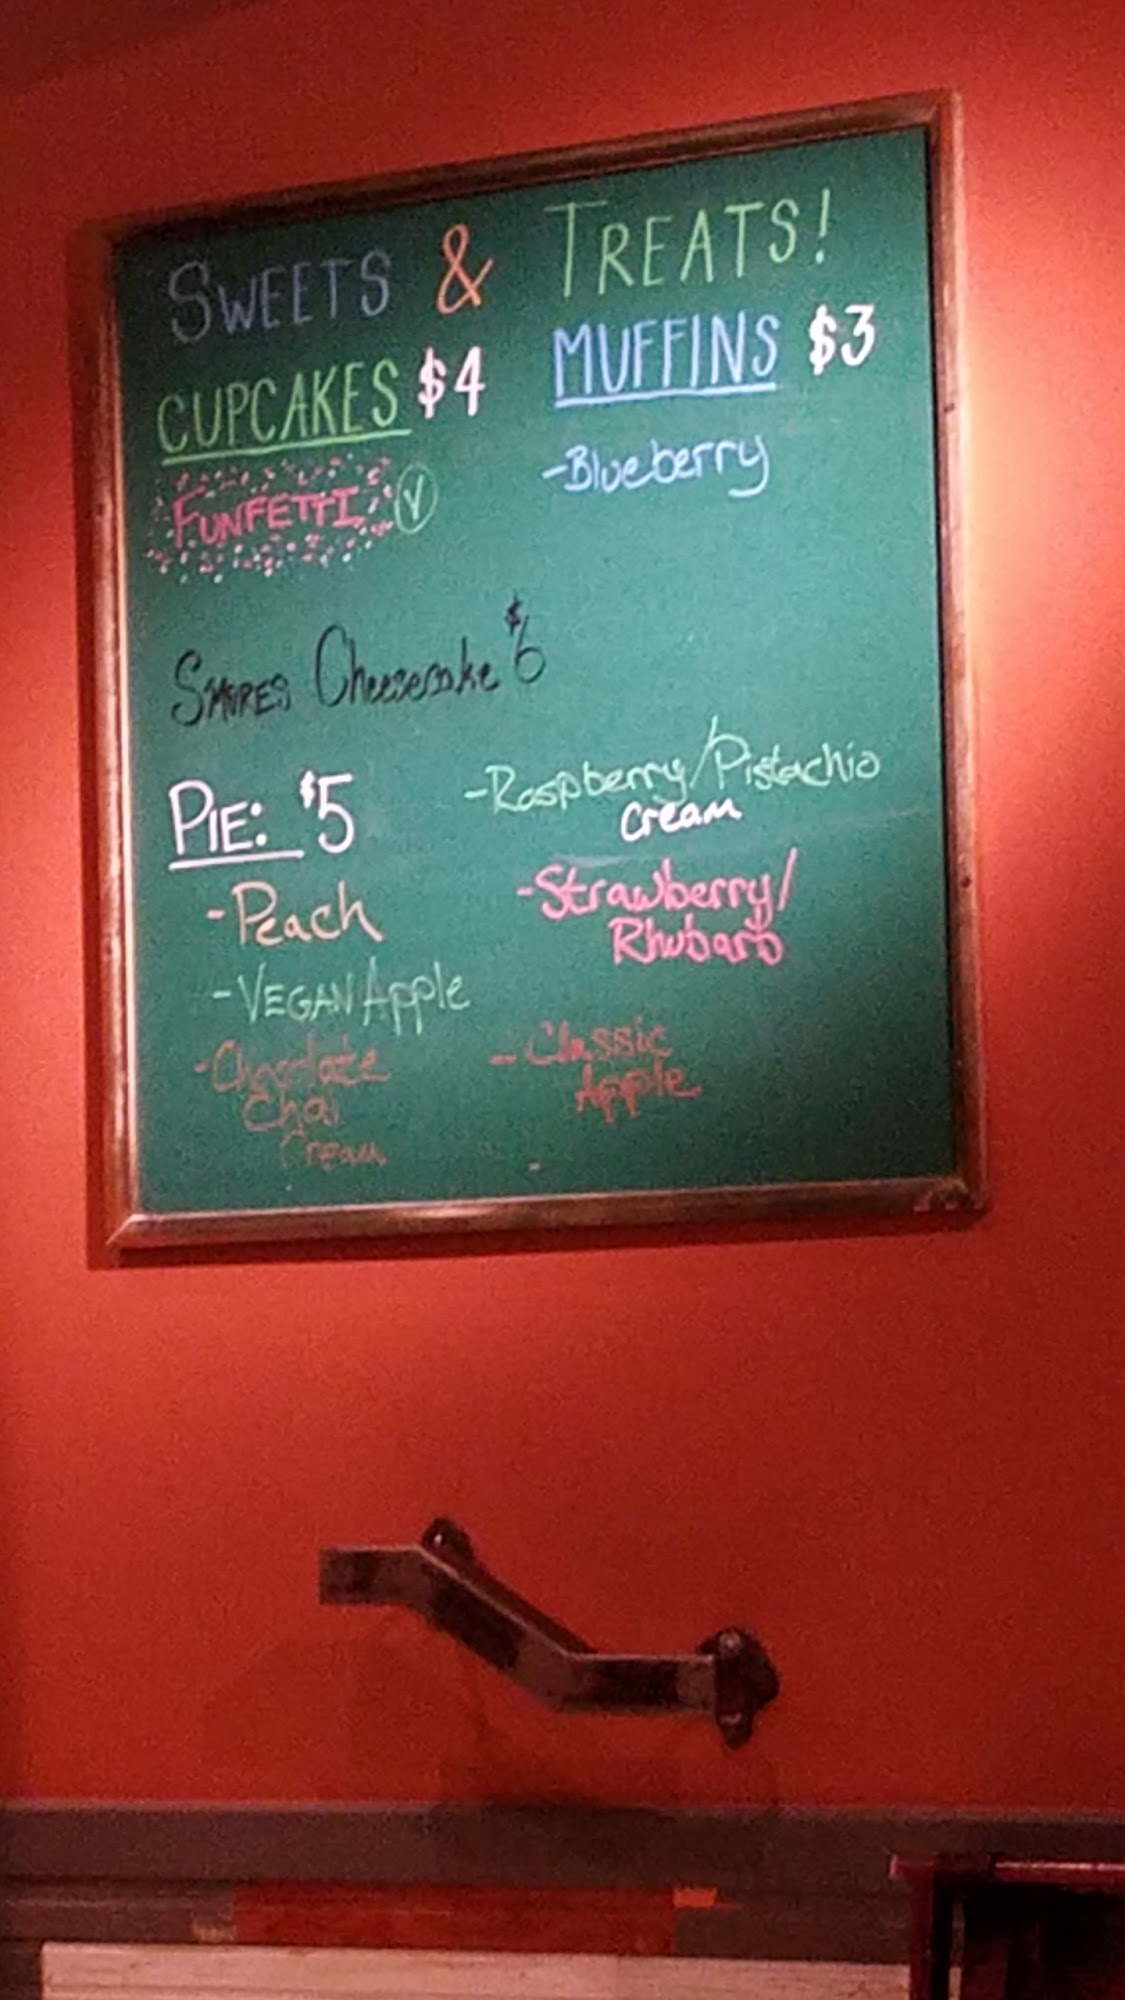 SWEETS & TREATS!
CUPCAKES $4
FUNFETTI V
MUFFINS $3
-Blueberry
SMORES Cheesecake $6
PIE: $5
-Peach
-VEGAN Apple
-Chocolate
Chai
Cream
-Raspberry/Pistachio
Cream
-Strawberry/
Rhubarb
-Classic
Apple